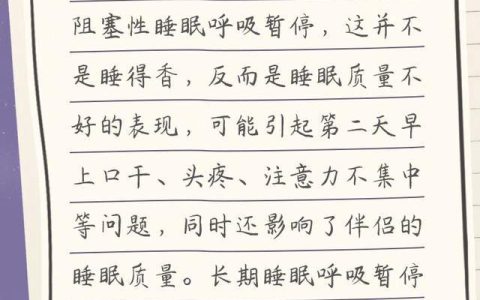 阻塞性睡眠呼吸暂停，这并不
是睡得香，反而是睡眠质量不
好的表现，可能引起第二天早
上口干、头疼、注意力不集中
等问题，同时还影响了伴侣的
睡眠质量。长期睡眠呼吸暂停